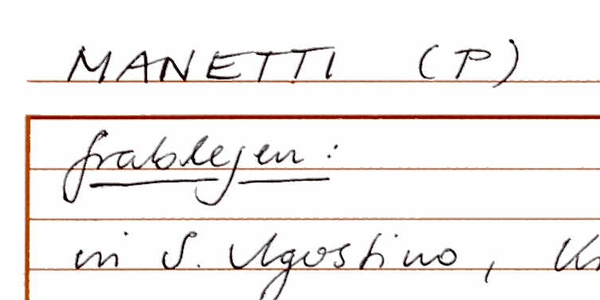 MANETTI (P)
Grablegen:
in S. Agostino,